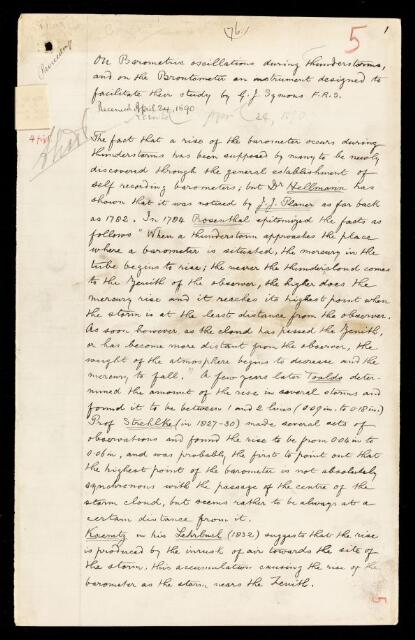 (76)
5
1
On Barometric oscillations during thunderstorms,
and on the Brontometer an instrument designed to
facilitate their study by G. J. Symons F.R.S.
Received April 24, 1890
The fact that a rise of the barometer occurs during
thunderstorms has been supposed by many to be newly
discovered through the general establishment of
self recording barometers; but Dr Hellmann has
shown that it was noticed by J. J. Planer as far back
as 1782. In 1784 Rosenthal epitomized the facts as
follows "When a thunderstorm approaches the place
where a barometer is situated, the mercury in the
tube begins to rise; the nearer the thundercloud comes
to the Zenith of the observer, the higher does the
mercury rise and it reaches its highest point when
the storm is at the least distance from the observer.
As soon however as the cloud has passed the Zenith,
or has become more distant from the observer, the
weight of the atmosphere begins to decrease and the
mercury to fall." A few years later Toaldo deter-
mined the amount of the rise in several storms and
found it to be between 1 and 2 lines (0.09 in. to 0.18 in.)
Prof Strehlke (in 1827-30) made several sets of
observations and found the rise to be from 0.04 in to
0.06 in, and was probably the first to point out that
the highest point of the barometer is not absolutely
synchronous with the passage of the centre of the
storm cloud, but seems rather to be always at a
certain distance from it.
Kaemtz in his Lehrbuch (1832) suggests that the rise
is produced by the inrush of air towards the site of
the storm, this accumulation causing the rise of the
barometer as the storm nears the Zenith.
5